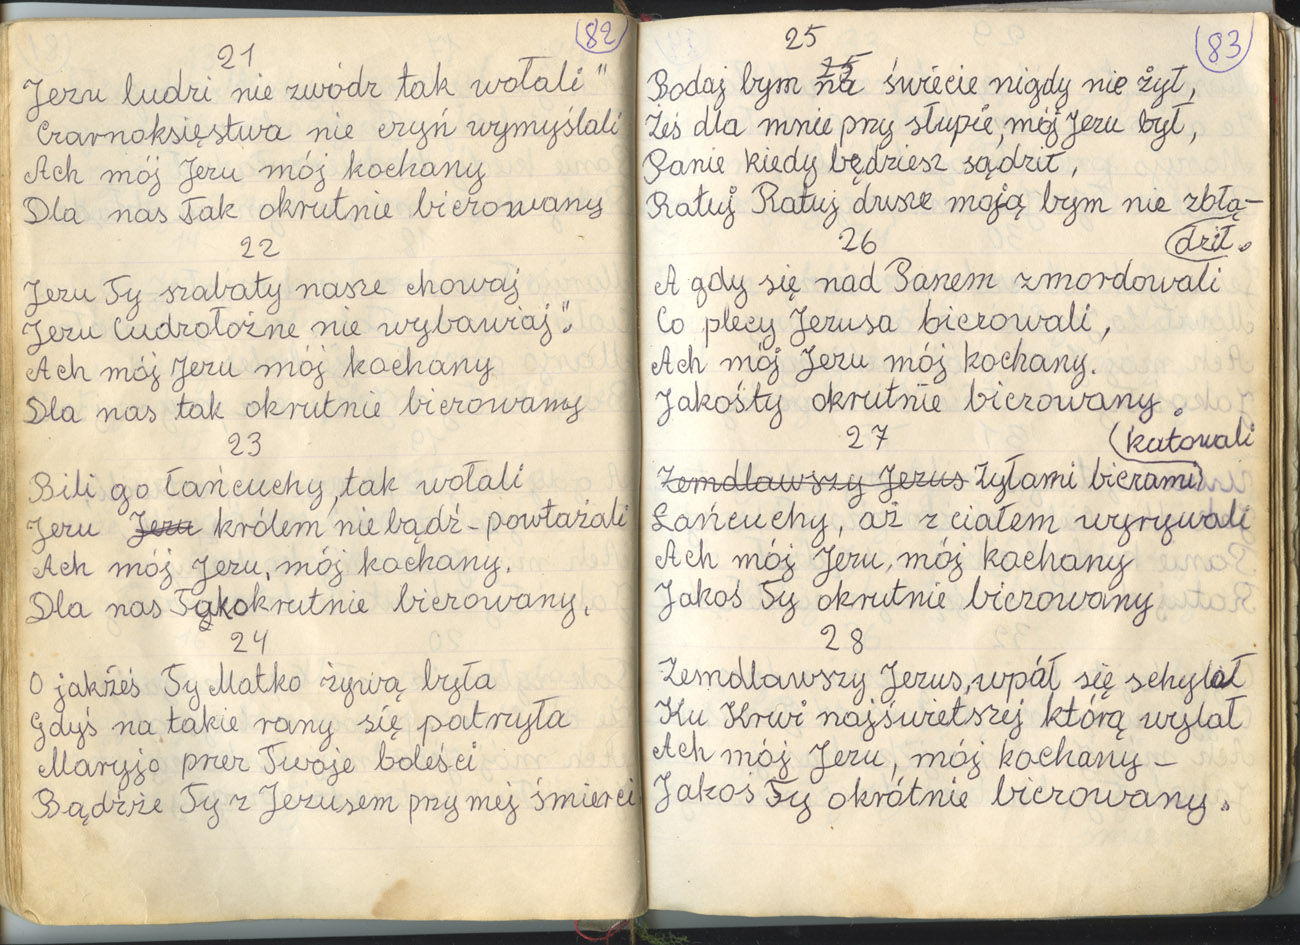 82
21
Jezu ludzi nie zwódz tak wołali"
Czarnoksięstwa nie czyń wymyślali
Ach mój Jezu mój kochany
Dla nas tak okrutnie biczowany
22
Jezu Ty szabaty nasze chowaj
Jezu Cudzołożne nie wybawiaj".
Ach mój Jezu mój kochany
Dla nas tak okrutnie biczowany
23
Bili go łańcuchy, tak wołali
Jeru Jezu królem nie bądź - powtażali
Ach mój Jezu, mój kochany.
Dla nas Tak okrutnie biczowany.
24
O jakżeś Ty Matko żywą była
Gdyś na takie rany się patrzyła
Maryjo przez Twoje boleści
Bądźże Ty z Jezusem przy mej śmierci
83
25
Bodaj bym na świecie nigdy nie żył,
Żeś dla mnie przy słupie, mój Jezu był,
Panie kiedy będziesz sądził,
Ratuj Ratuj dusze moją bym nie zbłą-
dził.
26
A gdy się nad Panem zmordowali
Co plecy Jezusa biczowali,
Ach mój Jezu mój kochany.
Jakośty okrutnie biczowany.
27
(katowali
Zemdlawszy Jezus Żyłami biczami
Łańcuchy, aż z ciałem wyrywali
Ach mój Jezu, mój kochany
Jakoś Ty okrutnie biczowany
28
Zemdlawszy Jezus, wpół się schylał
Ku Krwi najświetszej którą wylał
Ach mój Jezu, mój kochany -
Jakoś Ty okrótnie biczowany.